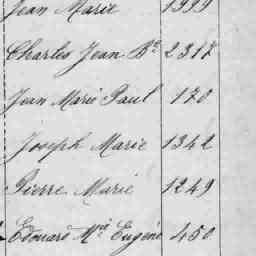 Jean Marie 1399
Charles Jean Bte 2317
Jean Marie Paul 170
Joseph Marie 1342
Pierre Marie 1249
Edouard Mie Eugène 450